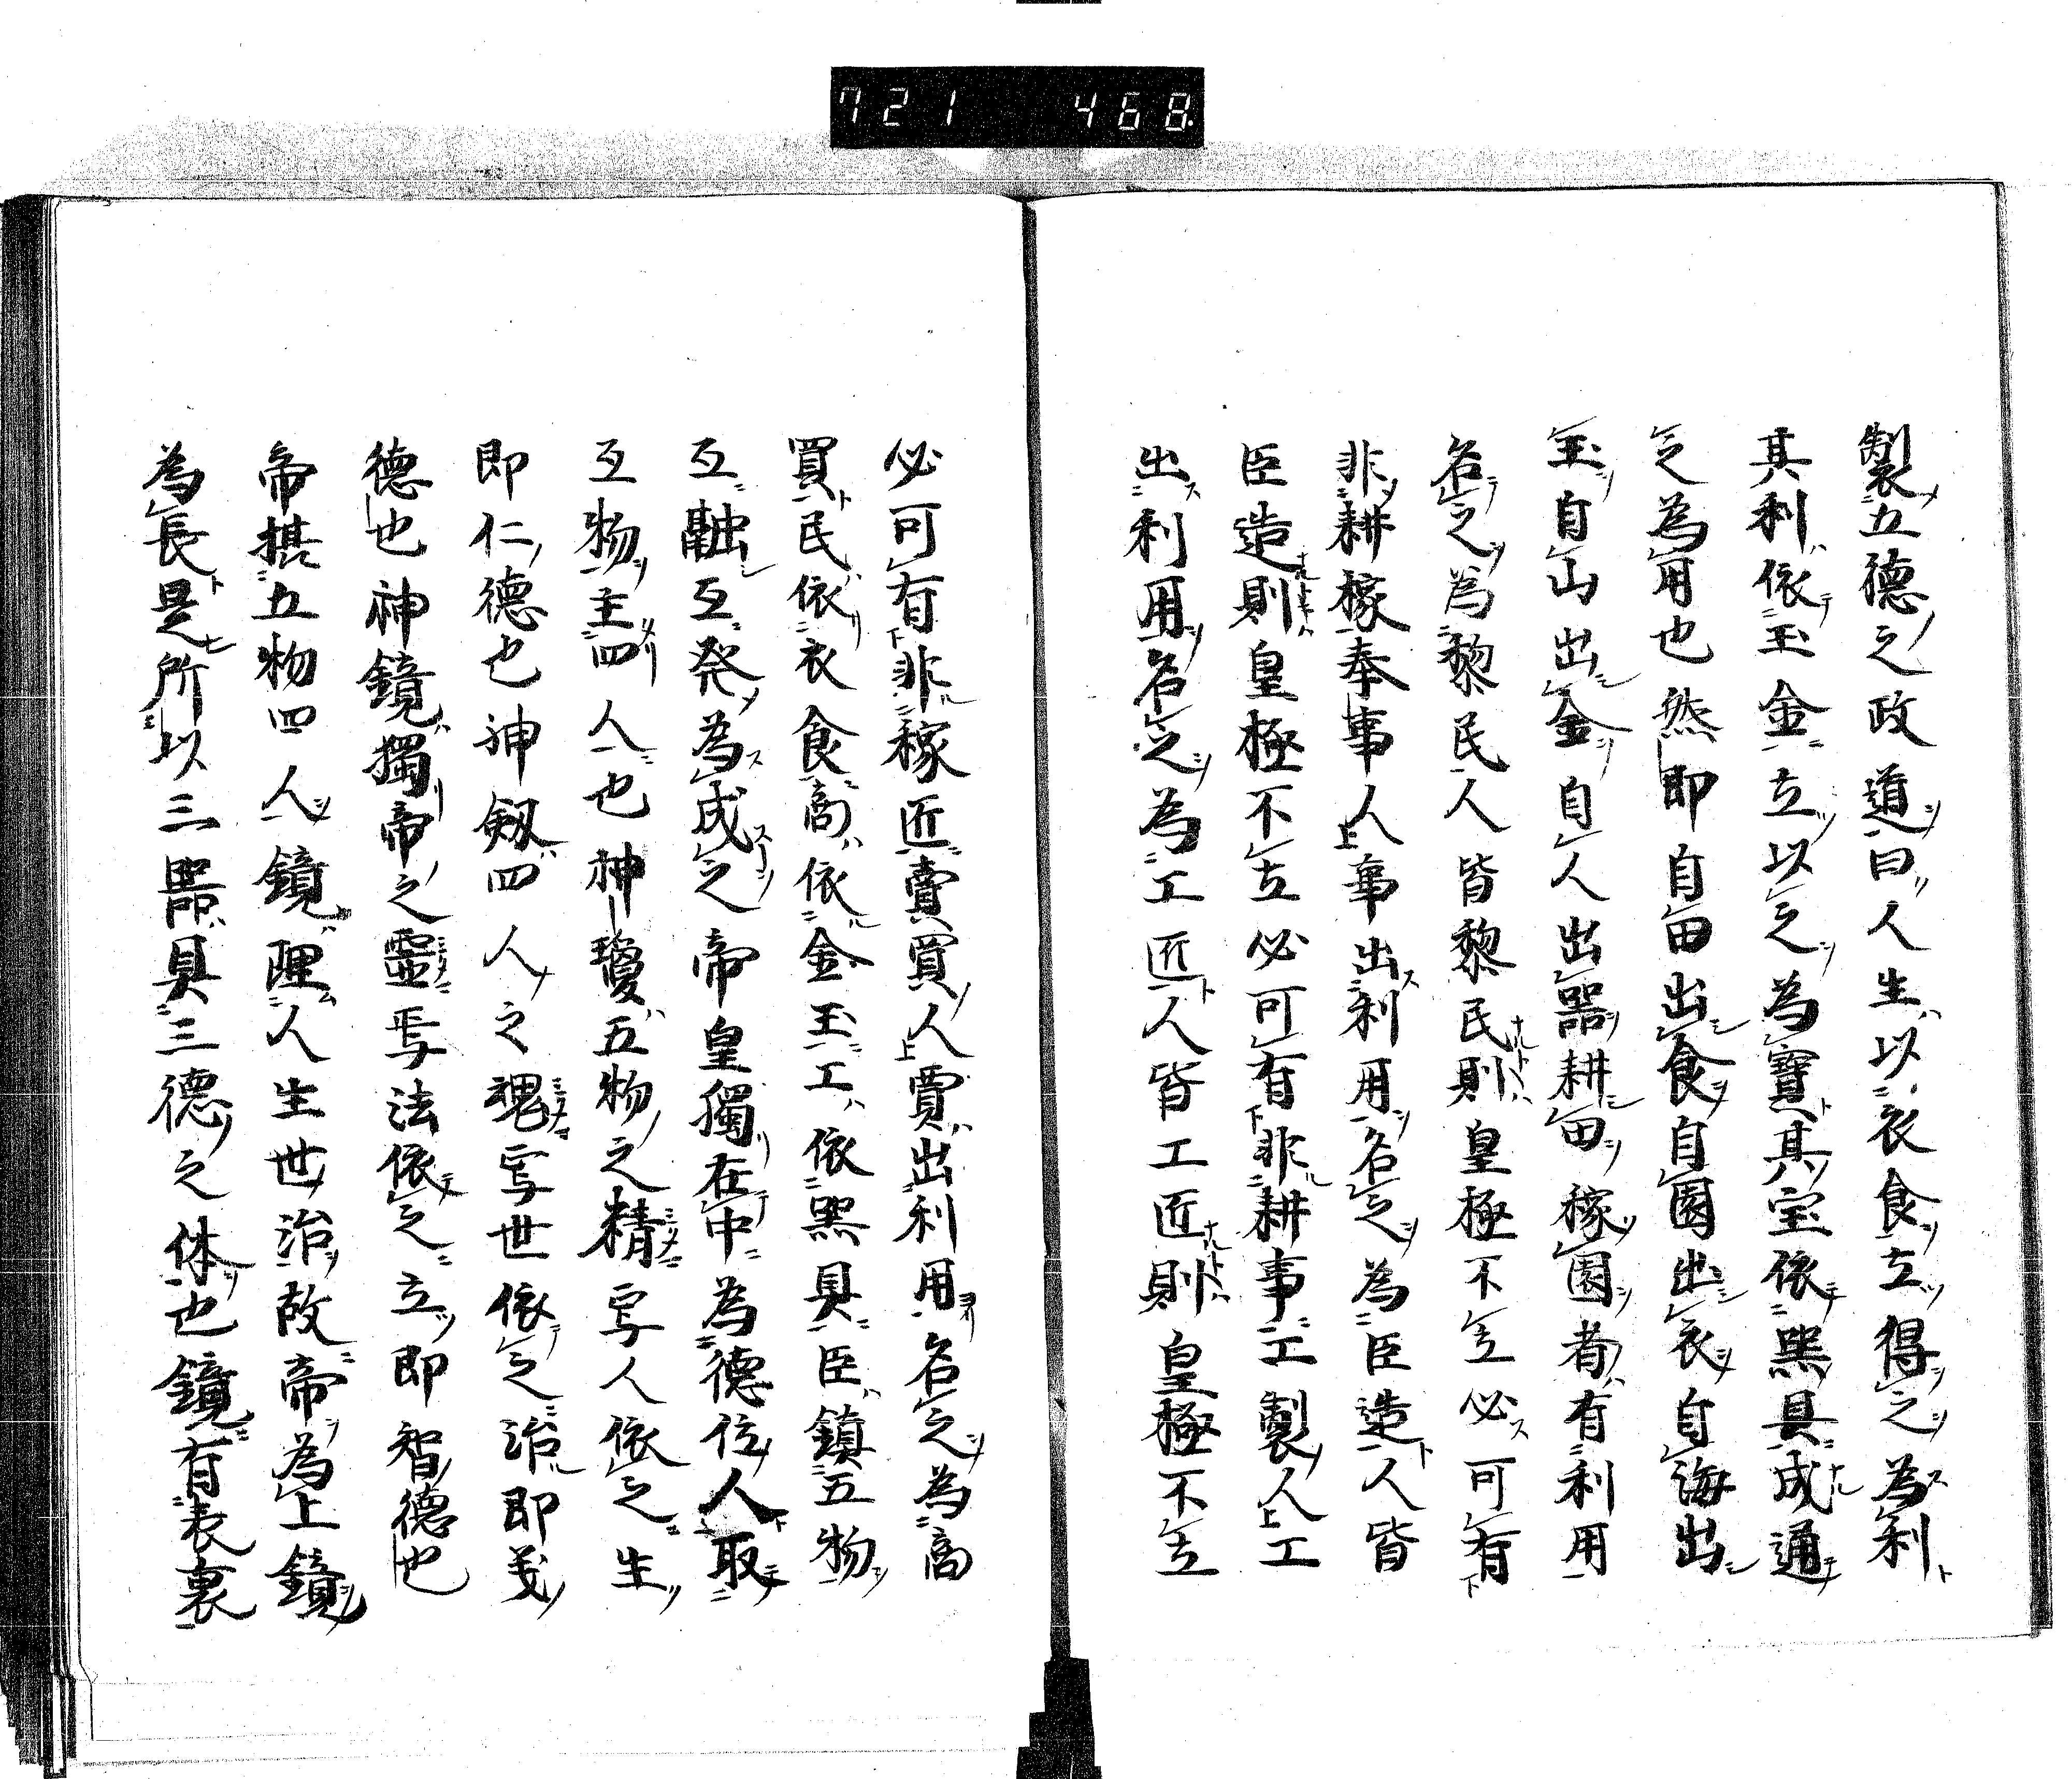 721 468
製五德之政道曰人生以衣食立得之為利
其利依玉金立以之為寶其宝依噐具成通
之為用也然即自田出食自園出衣自海出
玉自山出金自人出噐耕田稼園者有利用
名之為黎民人皆黎民則皇極不立必可有
非耕稼奉事人事出利用名之為臣造人皆
臣造則皇極不立必可有非耕事工製人工
出利用名之為工匠人皆工匠則皇極不立
必可有非稼匠賣買人賣出利用名之為商
買民依衣食商依金玉工依噐具臣鎮五物
互融互発為成之帝皇獨在中為德位人取
五物主四人也神瓊五物之精写人依之生
即仁德也神劔四人之魂写世依之治即義
德也神鏡獨帝之靈写法依之立即智德也
帝拱五物四人鏡理人生世治故帝為上鏡
為長是所以三噐具三德之体也鏡有表裏